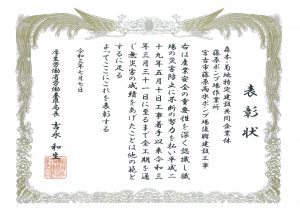 表彰状
森本・菊地特定建設共同企業体
藤原ポンプ場作業所
宮古市藤原雨水ポンプ場復興建設工事
右は産業安全の重要性を深く認識し職
場の災害防止に不断の努力を払い平成二
十九年五月十日工事着手以来令和三
年三月三十一日に至るまで全工期を通
じ無災害の成績をあげたことは他の範と
するに足る
よってここにこれを表彰する
令和三年七月七日
厚生労働省労働基準局長 吉永 和生